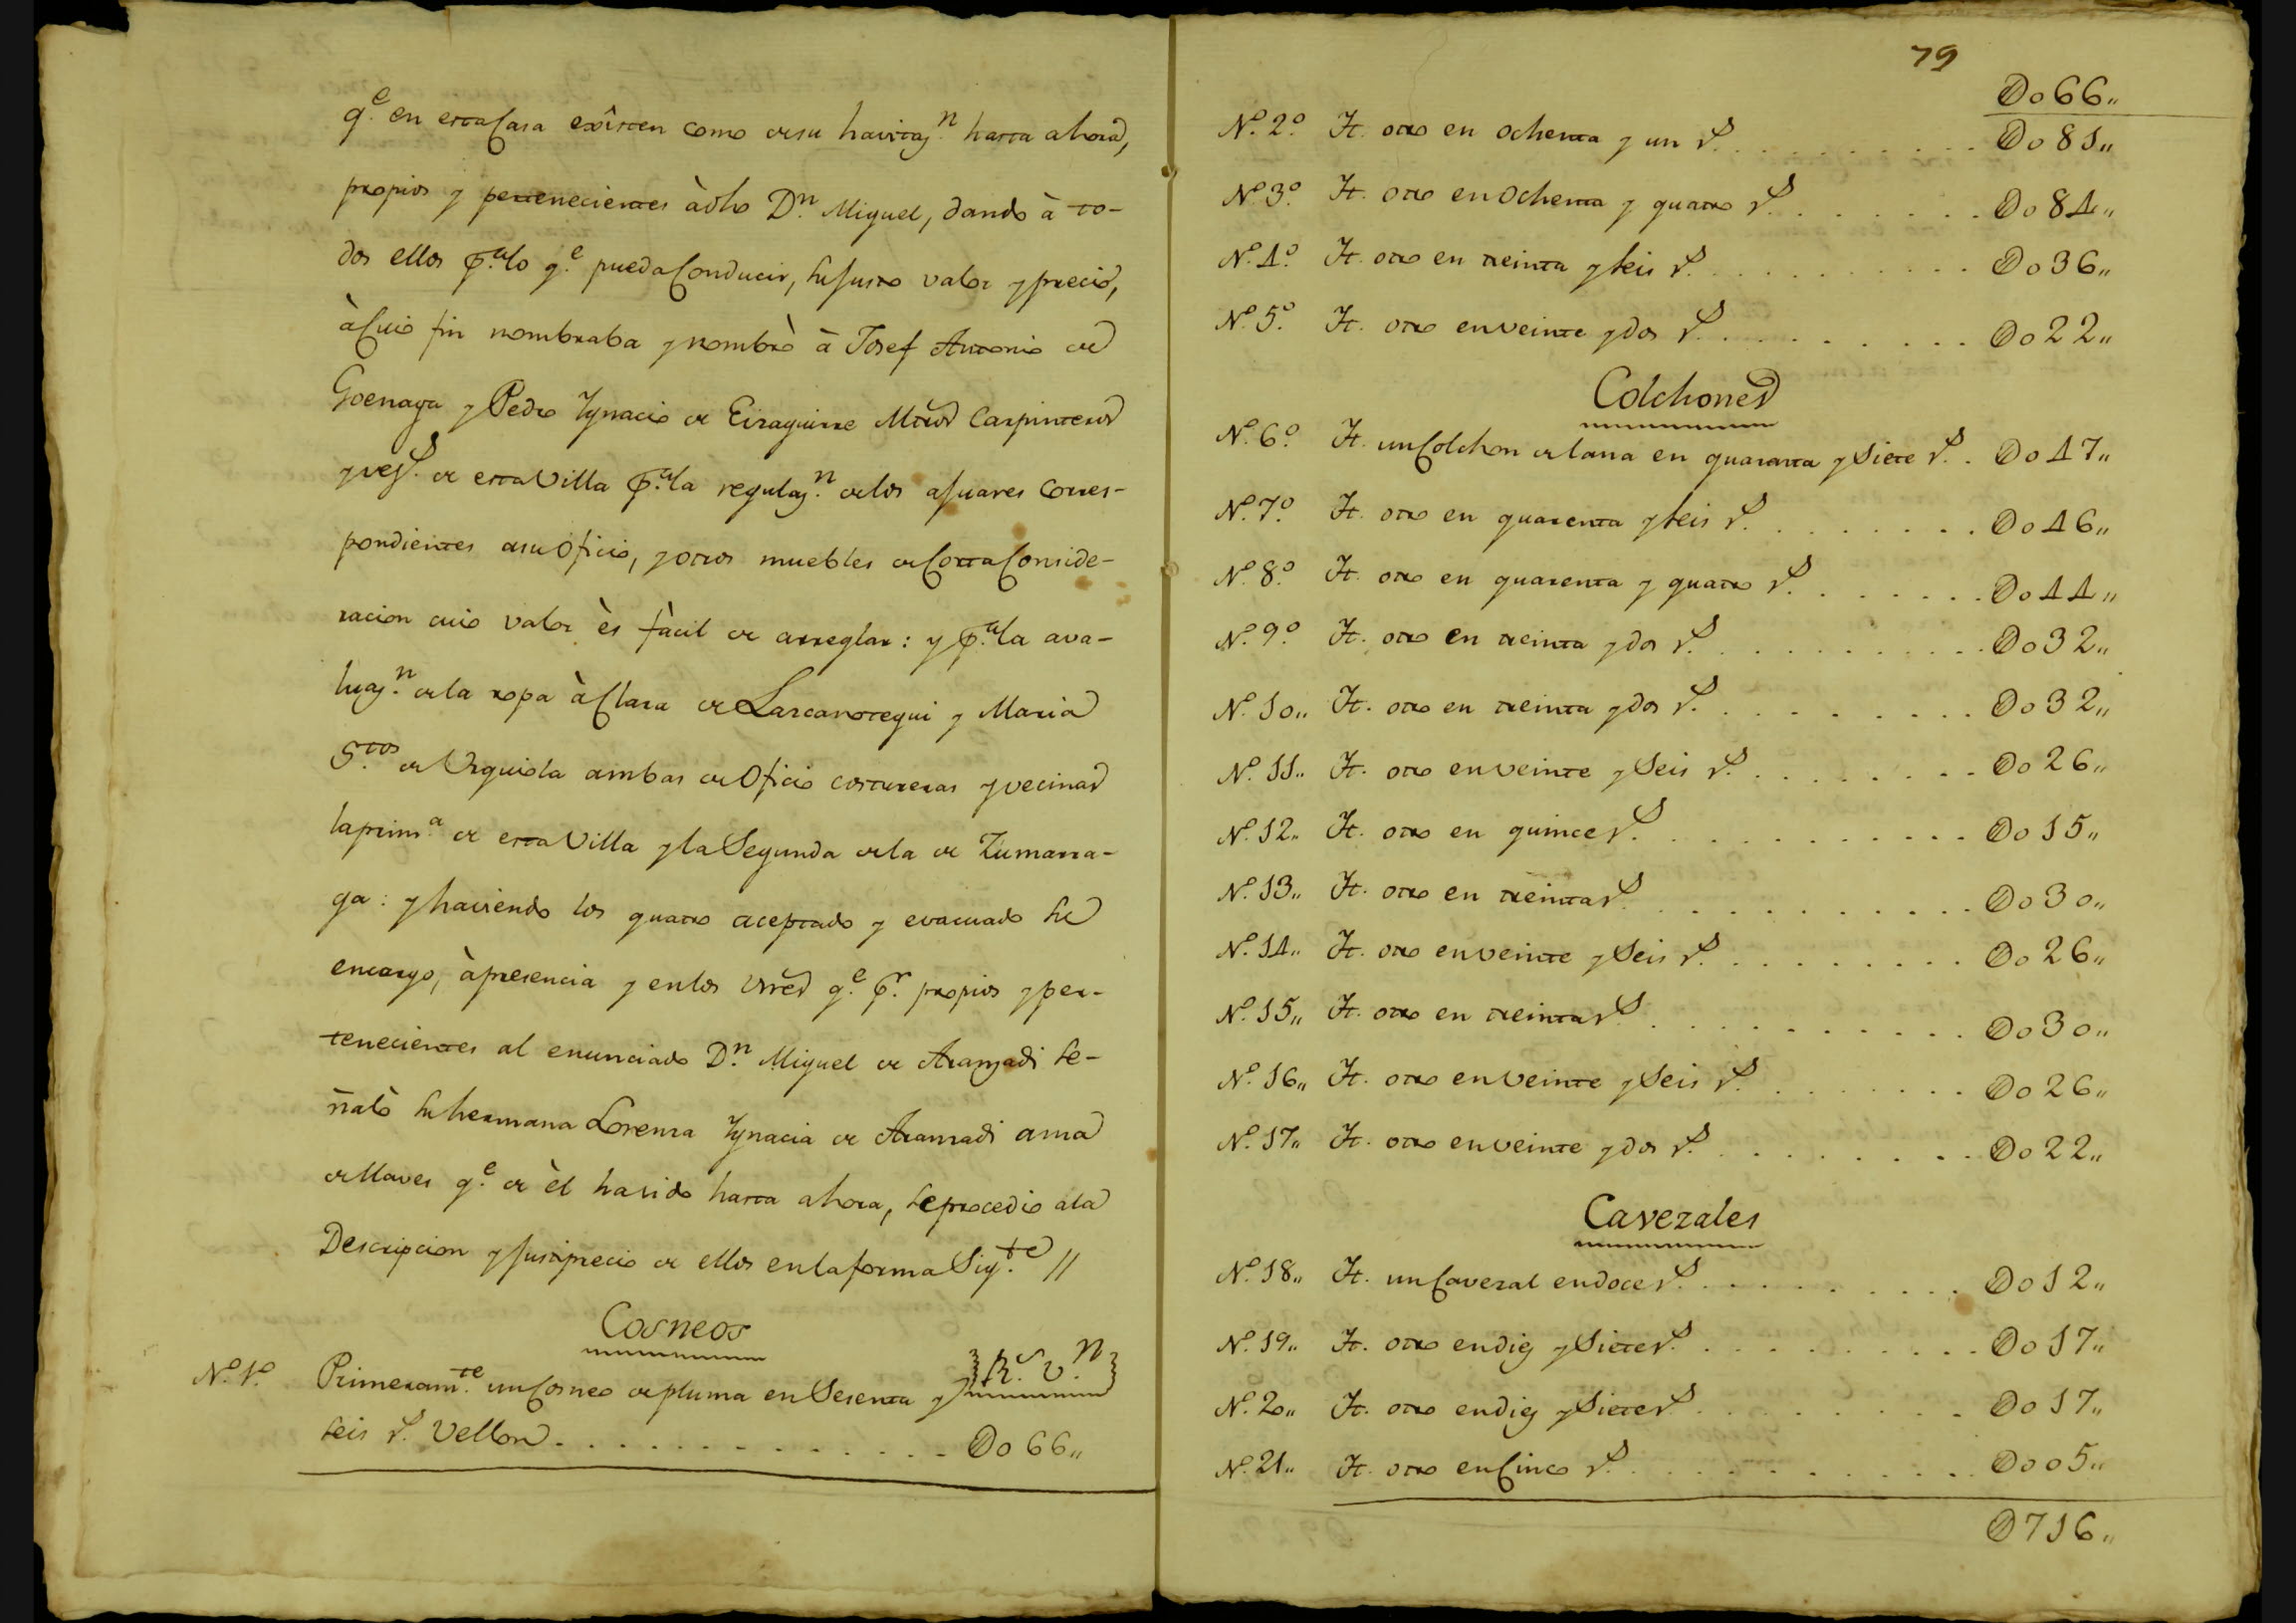 q.e en esta Casa exîsten como de su havitaz.n hasta ahora,
propios y pertenecientes à dho D.n Miguel, dando à to-
dos ellos p.a lo q.e pueda Conducir, su justo valor y precio,
à Cuio fin nombraba y nombrò à Josef Antonio de
Goenaga y Pedro Ygnacio de Eizaguirre Mtros Carpinteros
y vez.s de esta Villa p.a la regulaz.n de los ajuares Corres-
pondientes a su Oficio, y otros muebles de Corta Conside-
racion cuio valor ès fàcil de arreglar: y p.a la ava-
luaz.n de la ropa à Clara de Lascanotegui y Maria
S.tos de Urquiola ambas de Oficio costureras y vecinas
la prim.a de esta Villa y la Segunda de la de Zumarra-
ga: y haviendo los quatro aceptado y evacuado su
encargo, à presencia y en los vnes q.e p.r propios y per-
tenecientes al enunciado D.n Miguel de Aranzadi se-
ñalò su hermana Lorenza Ygnacia de Aranzadi ama
de llaves q.e de èl ha sido hasta ahora, se procedio a la
Descripcion y justiprecio de ellos en la forma Sig.te //
Cosneos
R.s v.n
N.o 1.o Primeram.te un Cosneo de pluma en Sesenta y
seis r.s Vellon. . . . . . . . . . . . . Do66,,
79
Do66,,
N.o 2.o It. otro en ochenta y un r.s . . . . . . . . . Do81,,
N.o 3.o It. otro en Ochenta y quatro r.s . . . . . . . Do84,,
N.o 4.o It. otro en treinta y seis r.s . . . . . . . . . Do36,,
N.o 5.o It. otro en veinte y dos r.s . . . . . . . . . Do22,,
Colchones
N.o 6.o It. un Colchon de lana en quarenta y Siete r.s . Do47,,
N.o 7.o It. otro en quarenta y seis r.s . . . . . . . Do46,,
N.o 8.o It. otro en quarenta y quatro r.s . . . . . . Do44,,
N.o 9.o It. otro en treinta y dos r.s . . . . . . . . . Do32,,
N.o 10,, It. otro en treinta y dos r.s . . . . . . . . . Do32,,
N.o 11,, It. otro en veinte y Seis r.s . . . . . . . . Do26,,
N.o 12,, It. otro en quince r.s . . . . . . . . . . . Do15,,
N.o 13,, It. otro en treinta r.s . . . . . . . . . . . Do30,,
N.o 14,, It. otro en veinte y Seis r.s . . . . . . . . . Do26,,
N.o 15,, It. otro en treinta r.s . . . . . . . . . . . Do30,,
N.o 16,, It. otro en Veinte y Seis r.s . . . . . . . Do26,,
N.o 17,, It. otro en veinte y dos r.s . . . . . . . . . Do22,,
Cavezales
N.o 18,, It. un Cavezal en doce r.s . . . . . . . . . Do12,,
N.o 19,, It. otro en diez y Siete r.s . . . . . . . . . Do17,,
N.o 20,, It. otro en diez y Siete r.s . . . . . . . . . Do17,,
N.o 21,, It. otro en Cinco r.s . . . . . . . . . . . Doo5,,
D716,,